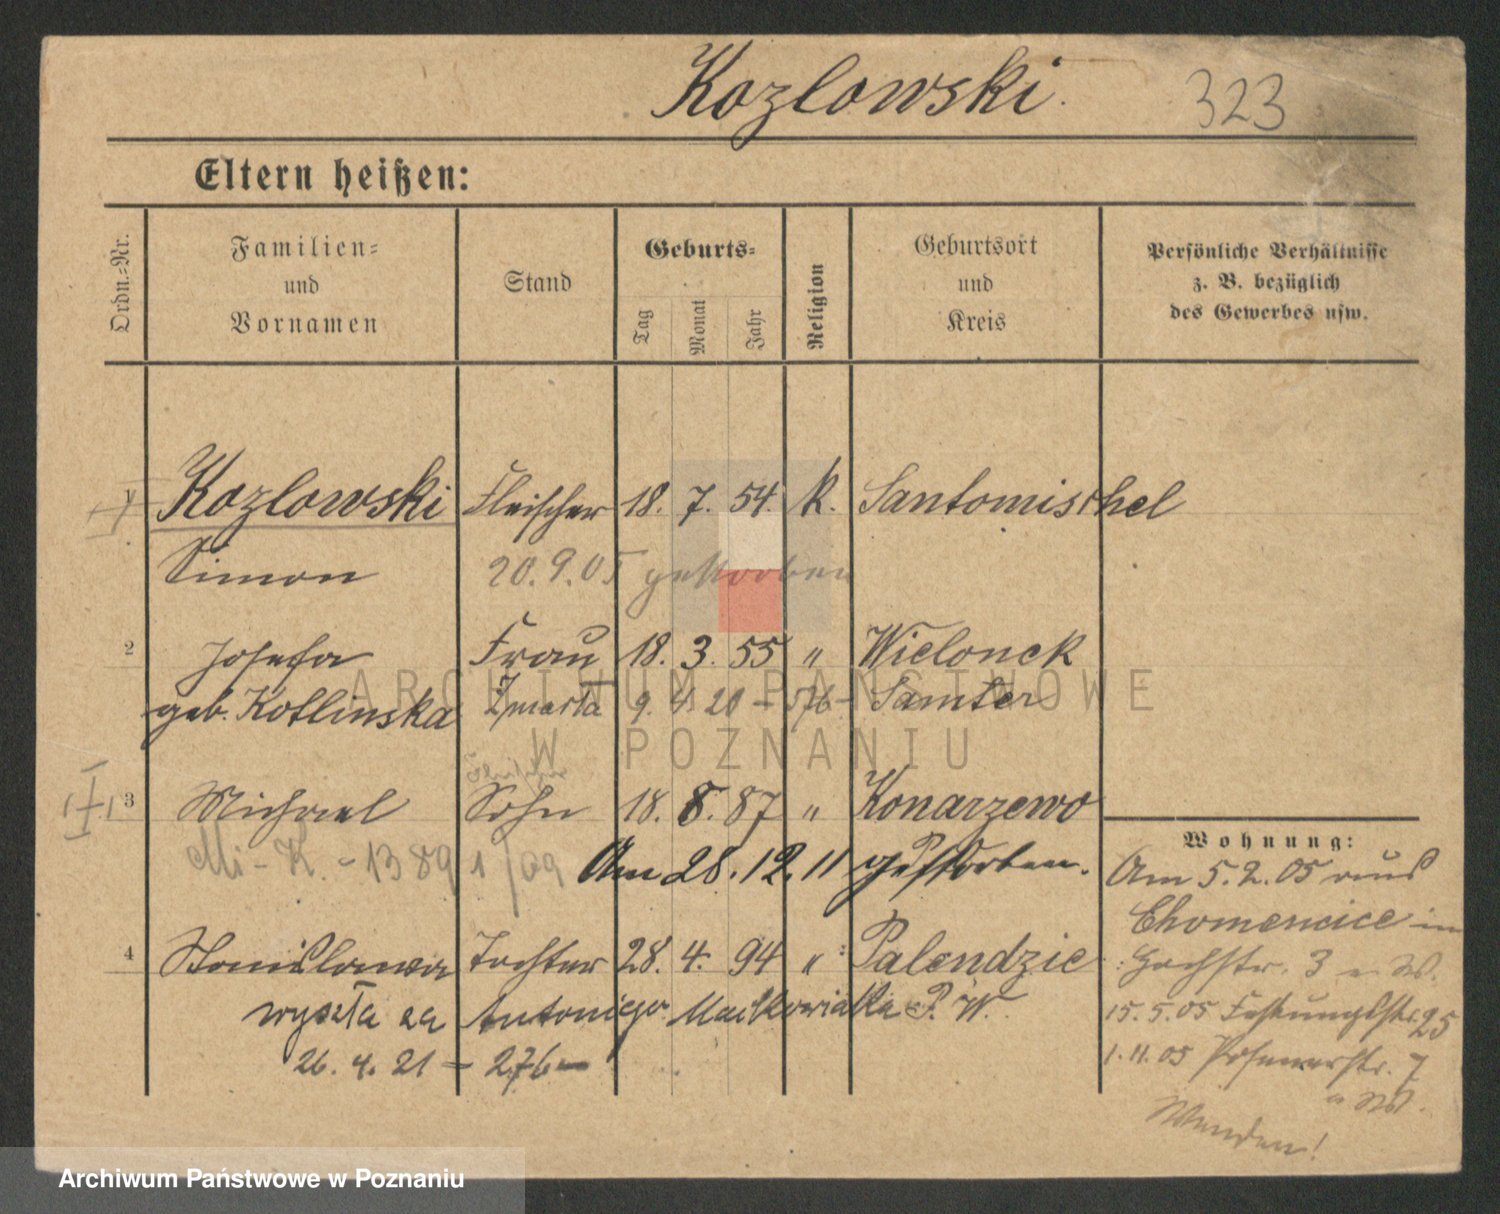 Kozlowski.
323
Eltern heißen:
Ordn.-Nr.
Familien-
und
Vornamen
Stand
Geburts-
Tag
Monat
Jahr
Religion
Geburtsort
und
Kreis
Persönliche Verhältnisse
z. B. bezüglich
des Gewerbes usw.
1 Kozlowski Fleischer 18. 7. 54. k. Santomischel
Simon 20.9.05 gestorben
2 Josefa Frau 18. 3. 55 " Wielonek
geb. Kotlinska Zmarła 9. 4. 20 - 576 - Samter
3 Michael Sohn 18. 8. 87 " Konarzewo
Mi - K. - 1389 1/09 Am 28. 12. 11 gestorben.
4 Stanislawa Tochter 28. 4. 94 " Palendzie
wyszła za Antoniego Maćkowiaka P. W.
26. 4. 21 - 276 -
Wohnung:
Am 5.2.05 aus
Chomencice in
Hochstr. 3 W.
15.5.05 Festungsstr. 25
1.11.05 Posenerstr. 7
W.
Wenden!
ARCHIWUM PAŃSTWOWE
W POZNANIU
Archiwum Państwowe w Poznaniu